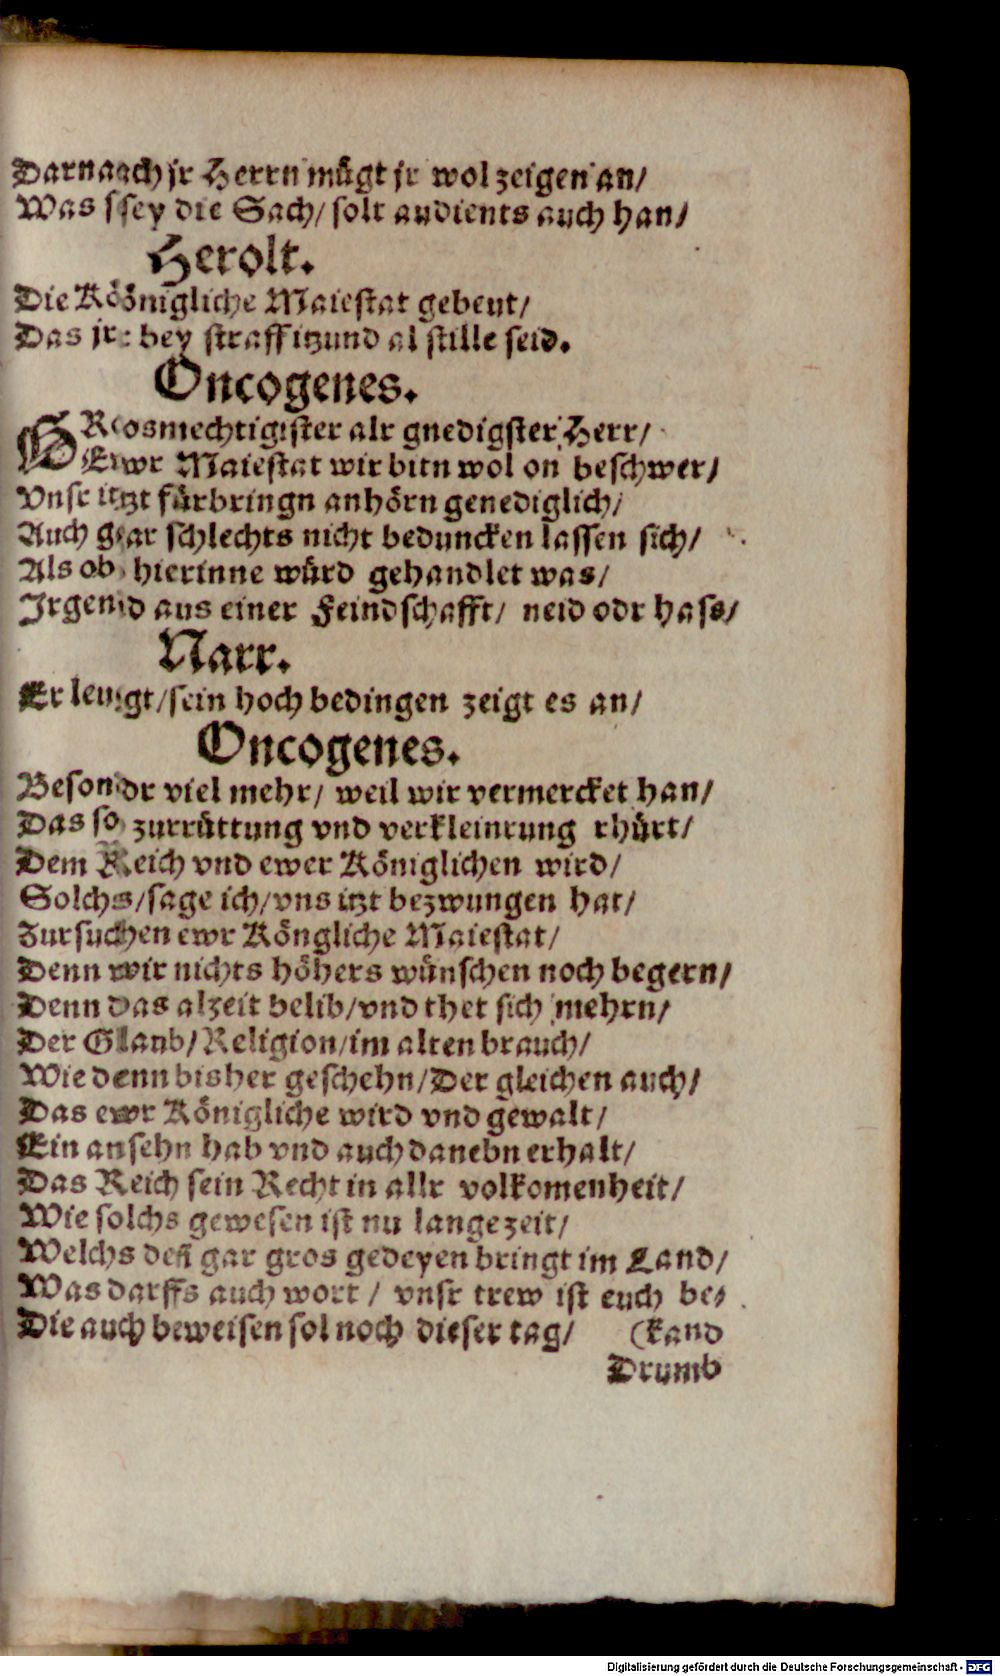 Darnach jr Herrn mügt jr wol zeigen an/
Was sey die Sach/ solt audients auch han/
Herolt.
Die Königliche Maiestat gebeut/
Das jr bey straff itzund al stille seid.
Oncogenes.
GRosmechtigister alr gnedigster Herr/
Ewr Maiestat wir bitn wol on beschwer/
Vnsr itzt fürbringn anhörn genediglich/
Auch gar schlechts nicht beduncken lassen sich/
Als ob hierinne würd gehandlet was/
Irgend aus einer Feindschafft/ neid odr hass/
Narr.
Er leugt/sein hoch bedingen zeigt es an/
Oncogenes.
Besondr viel mehr/ weil wir vermercket han/
Das so zurrüttung vnd verkleinrung rhürt/
Dem Reich vnd ewer Königlichen wird/
Solchs/sage ich/vns itzt bezwungen hat/
Zursuchen ewr Köngliche Maiestat/
Denn wir nichts höhers wünschen noch begern/
Denn das alzeit belib/vnd thet sich mehrn/
Der Glaub/Religion/im alten brauch/
Wie denn bisher geschehn/Der gleichen auch/
Das ewr Königliche wird vnd gewalt/
Ein ansehn hab vnd auch danebn erhalt/
Das Reich sein Recht in allr volkomenheit/
Wie solchs gewesen ist nu lange zeit/
Welchs deñ gar gros gedeyen bringt im Land/
Was darffs auch wort / vnsr trew ist euch be⸗
Die auch beweisen sol noch dieser tag/ (kand
Drumb
Digitalisierung gefördert durch die Deutsche Forschungsgemeinschaft - DFG